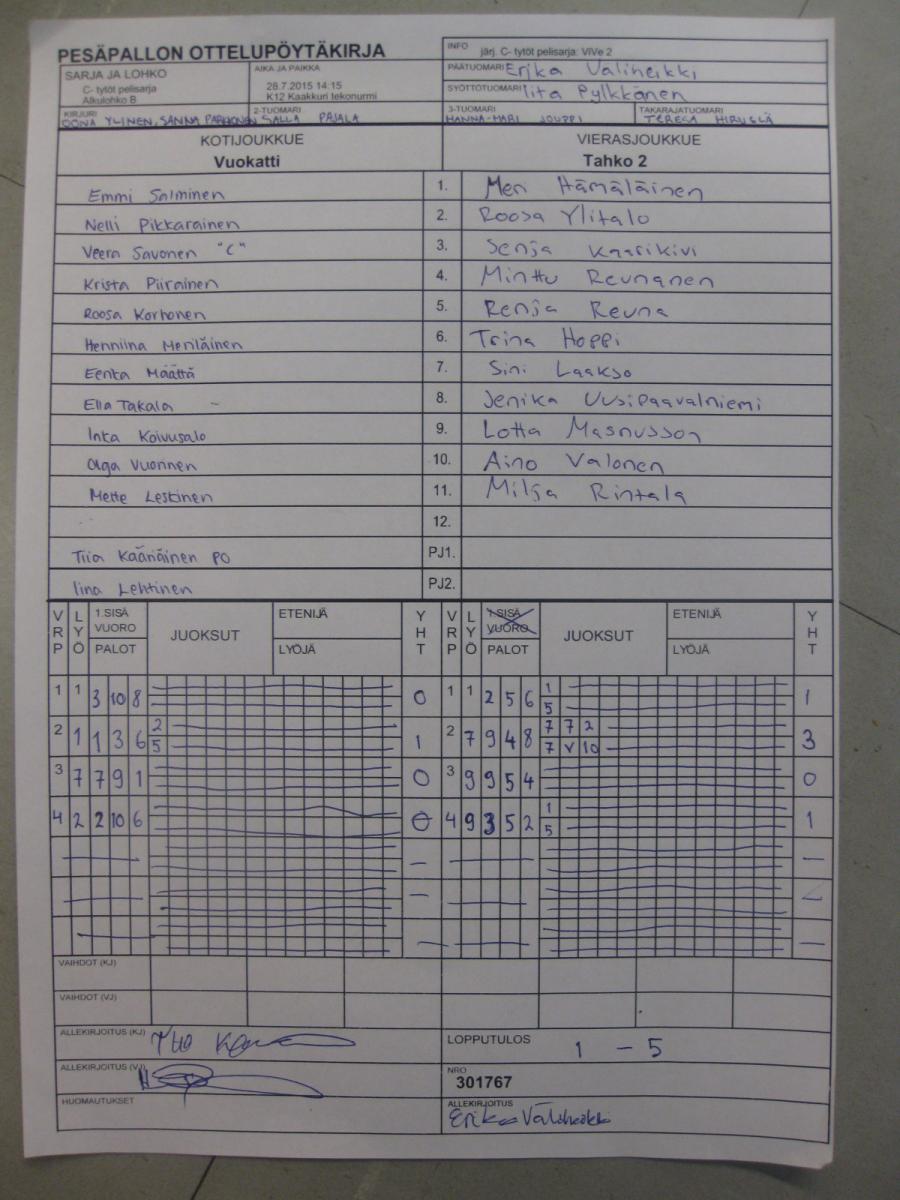 PESÄPALLON OTTELUPÖYTÄKIRJA
INFO järj. C- tytöt pelisarja: ViVe 2
SARJA JA LOHKO
C- tytöt pelisarja
Alkulohko B
AIKA JA PAIKKA
28.7.2015 14:15
K12 Kaakkuri tekonurmi
PÄÄTUOMARI Erika Väliheikki
SYÖTTÖTUOMARI Iita Pylkkänen
KIRJURI OONA YLINEN, SANNA PARHONEN
2-TUOMARI SALLA PAJALA
3-TUOMARI HANNA-MARI JOUPPI
TAKARAJATUOMARI TERESA
KOTIJOUKKUE
Vuokatti
VIERASJOUKKUE
Tahko 2
Emmi Salminen 1. Meri Hämäläinen
Nelli Pikkarainen 2. Roosa Ylitalo
Veera Savonen "C" 3. Senja Kaarikivi
Krista Piirainen 4. Minttu Reunanen
Roosa Korhonen 5. Renja Reuna
Henniina Meriläinen 6. Triina Hoppi
Eerika Määttä 7. Sini Laakso
Ella Takala - 8. Jenika Uusipaavalniemi
Inka Koivusalo 9. Lotta Masnusson
Olga Vuorinen 10. Aino Valonen
Mette Leskinen 11. Milja Rintala
12.
Tiia Kääriäinen PO PJ1.
Iina Lehtinen PJ2.
VRP LYÖ 1.SISÄ VUORO PALOT JUOKSUT ETENIJÄ LYÖJÄ YHT VRP LYÖ 1.SISÄ VUORO PALOT JUOKSUT ETENIJÄ LYÖJÄ YHT
1 1 3 10 8 0 1 1 2 5 6 1 5 1
2 1 1 3 6 2 5 1 2 7 9 4 8 7 7 2 7 V 10 3
3 7 7 9 1 0 3 9 9 5 4 0
4 2 2 10 6 0 4 9 3 5 2 1 5 1
VAIHDOT (KJ)
VAIHDOT (VJ)
ALLEKIRJOITUS (KJ)
LOPPUTULOS 1 - 5
ALLEKIRJOITUS (VJ)
NRO
301767
HUOMAUTUKSET
ALLEKIRJOITUS
Erika Väliheikki